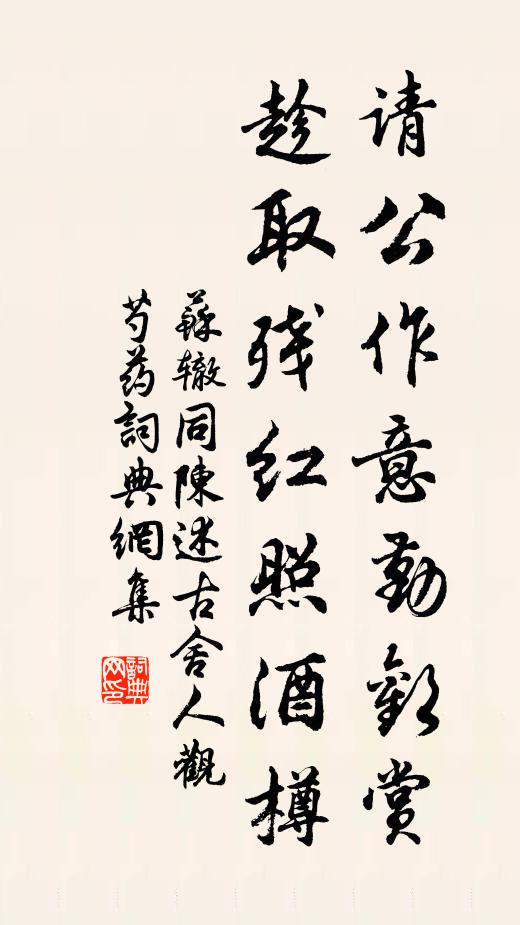 请公作意勤歡赏
趁取残红照酒樽
蘇辙同陳述古舍人觀
芍药詞典網集
詞典网印